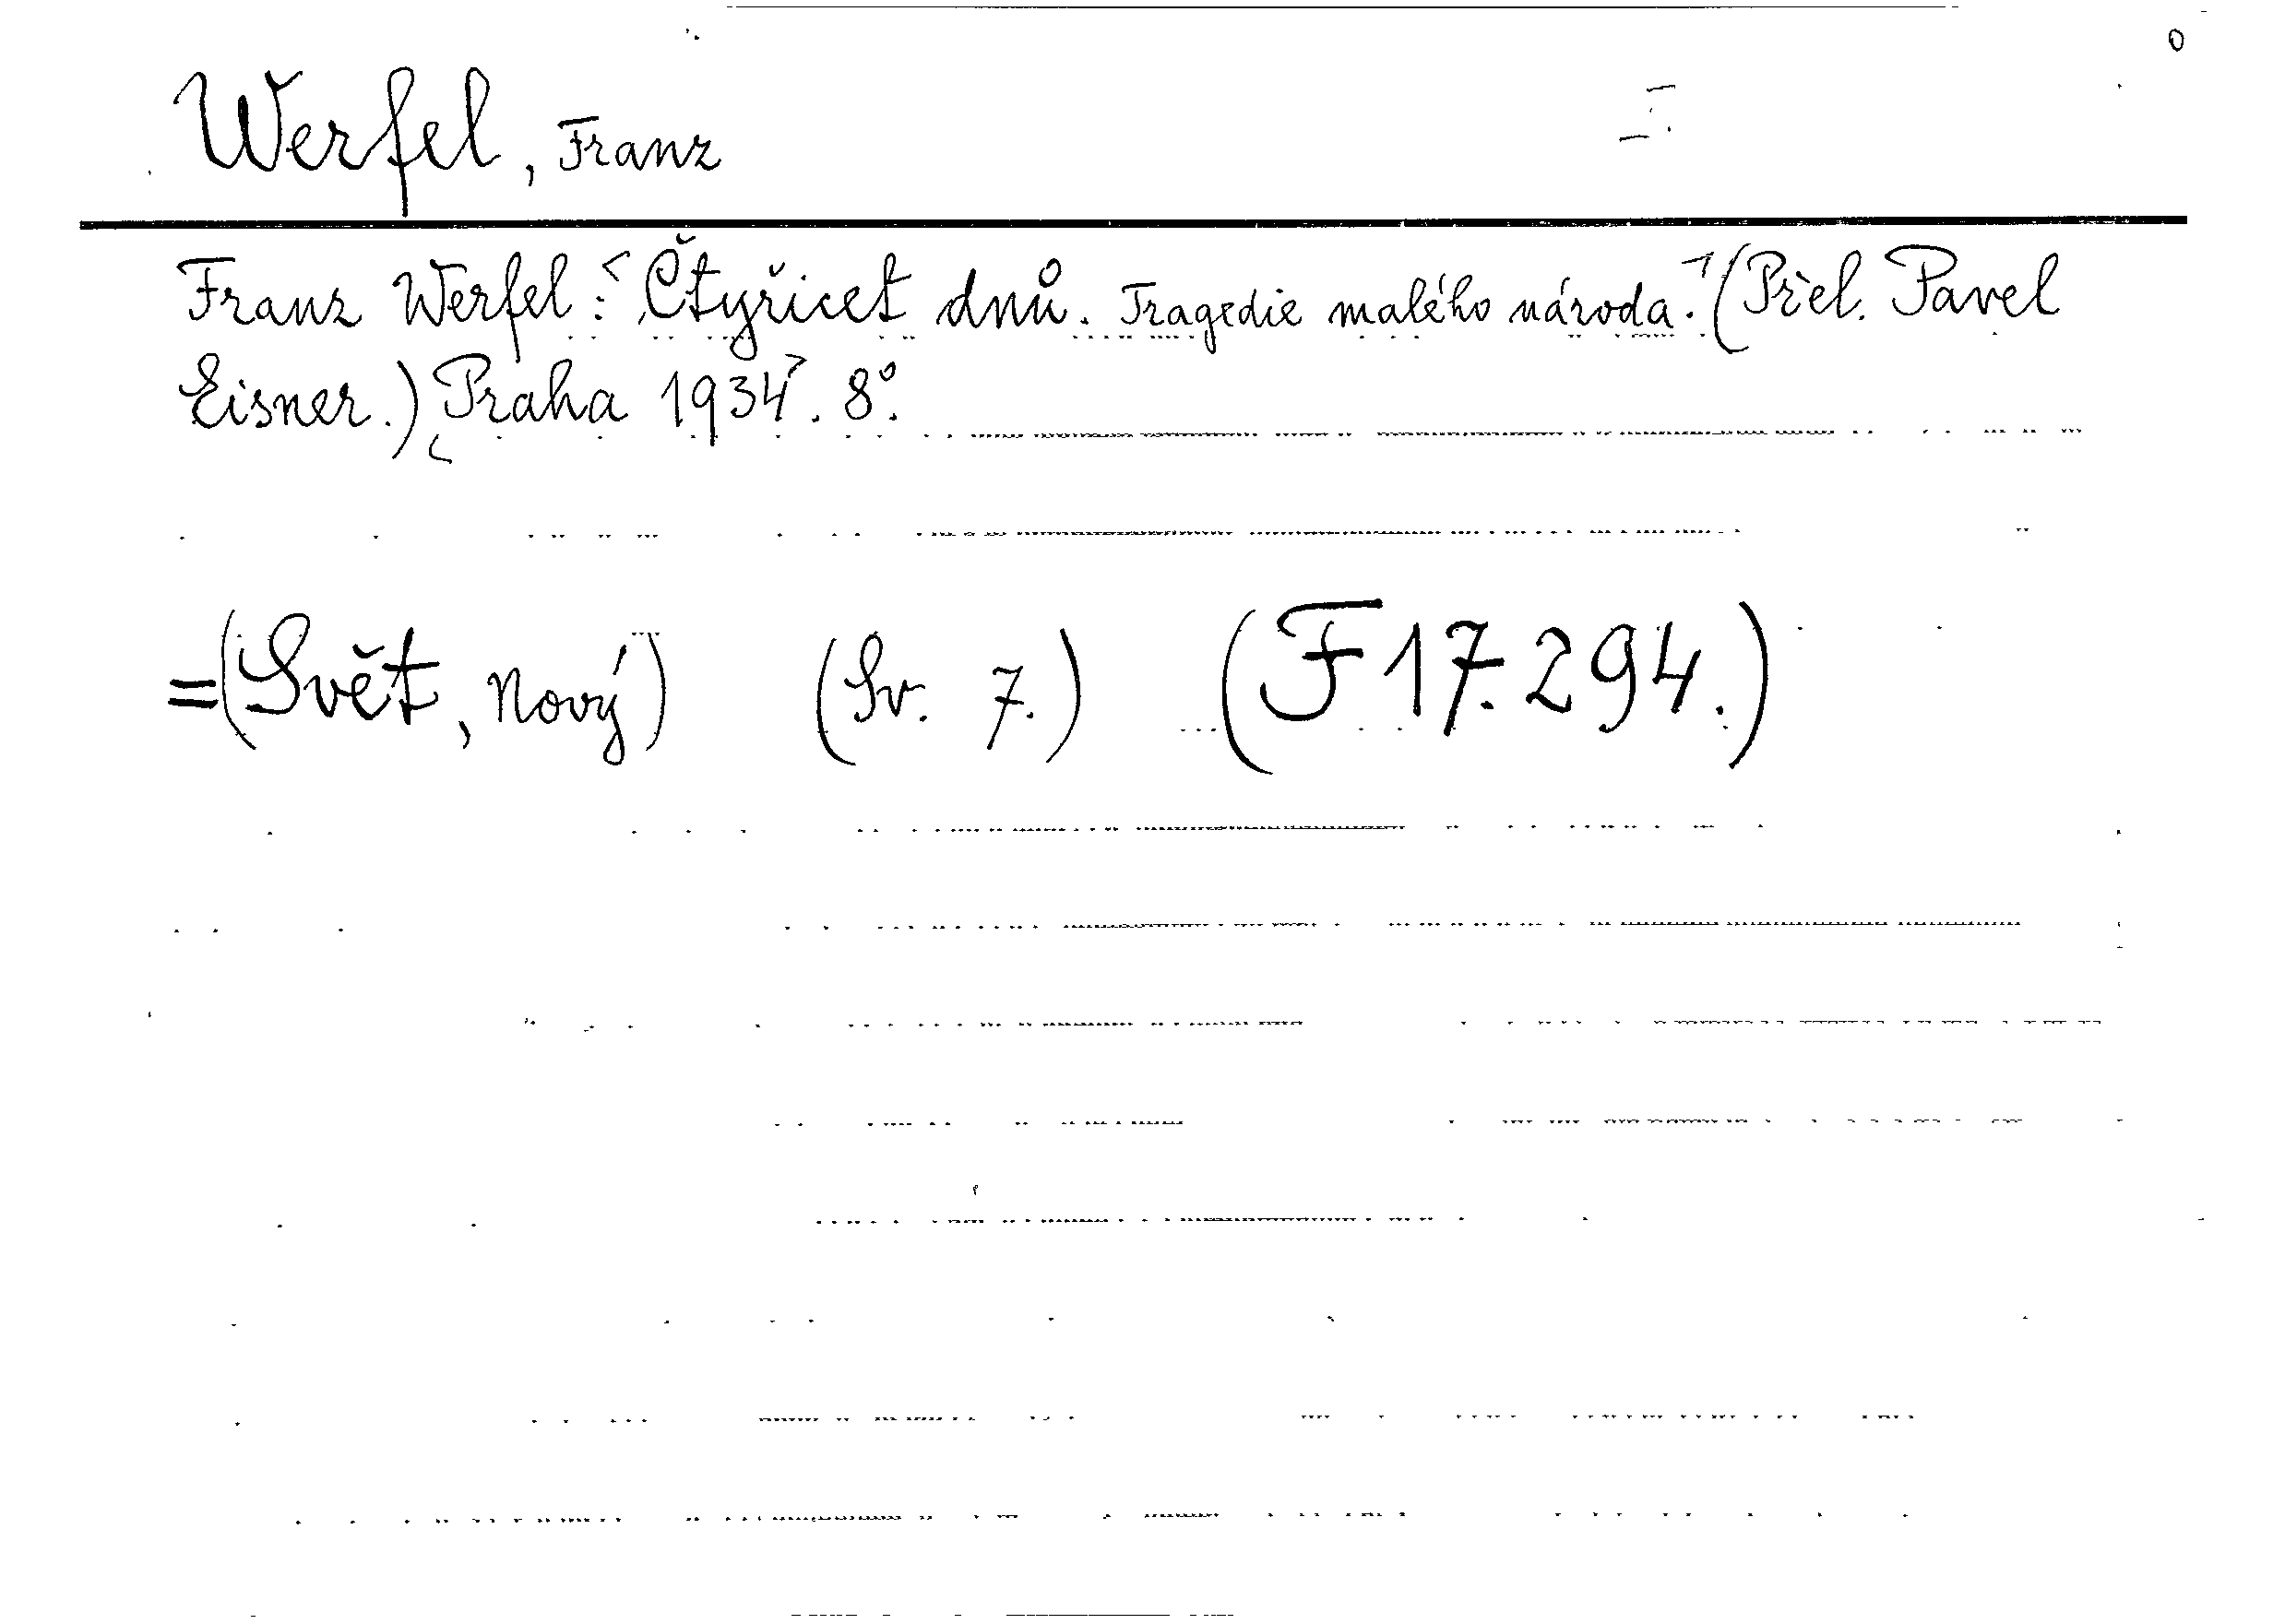 Werfel, Franz
Franz Werfel: Čtyřicet dnů. Tragedie malého národa. (Přel. Pavel
Eisner.) Praha 1934. 8°.
=(Svět, Nový) (Sv. 7.) (F 17.294.)